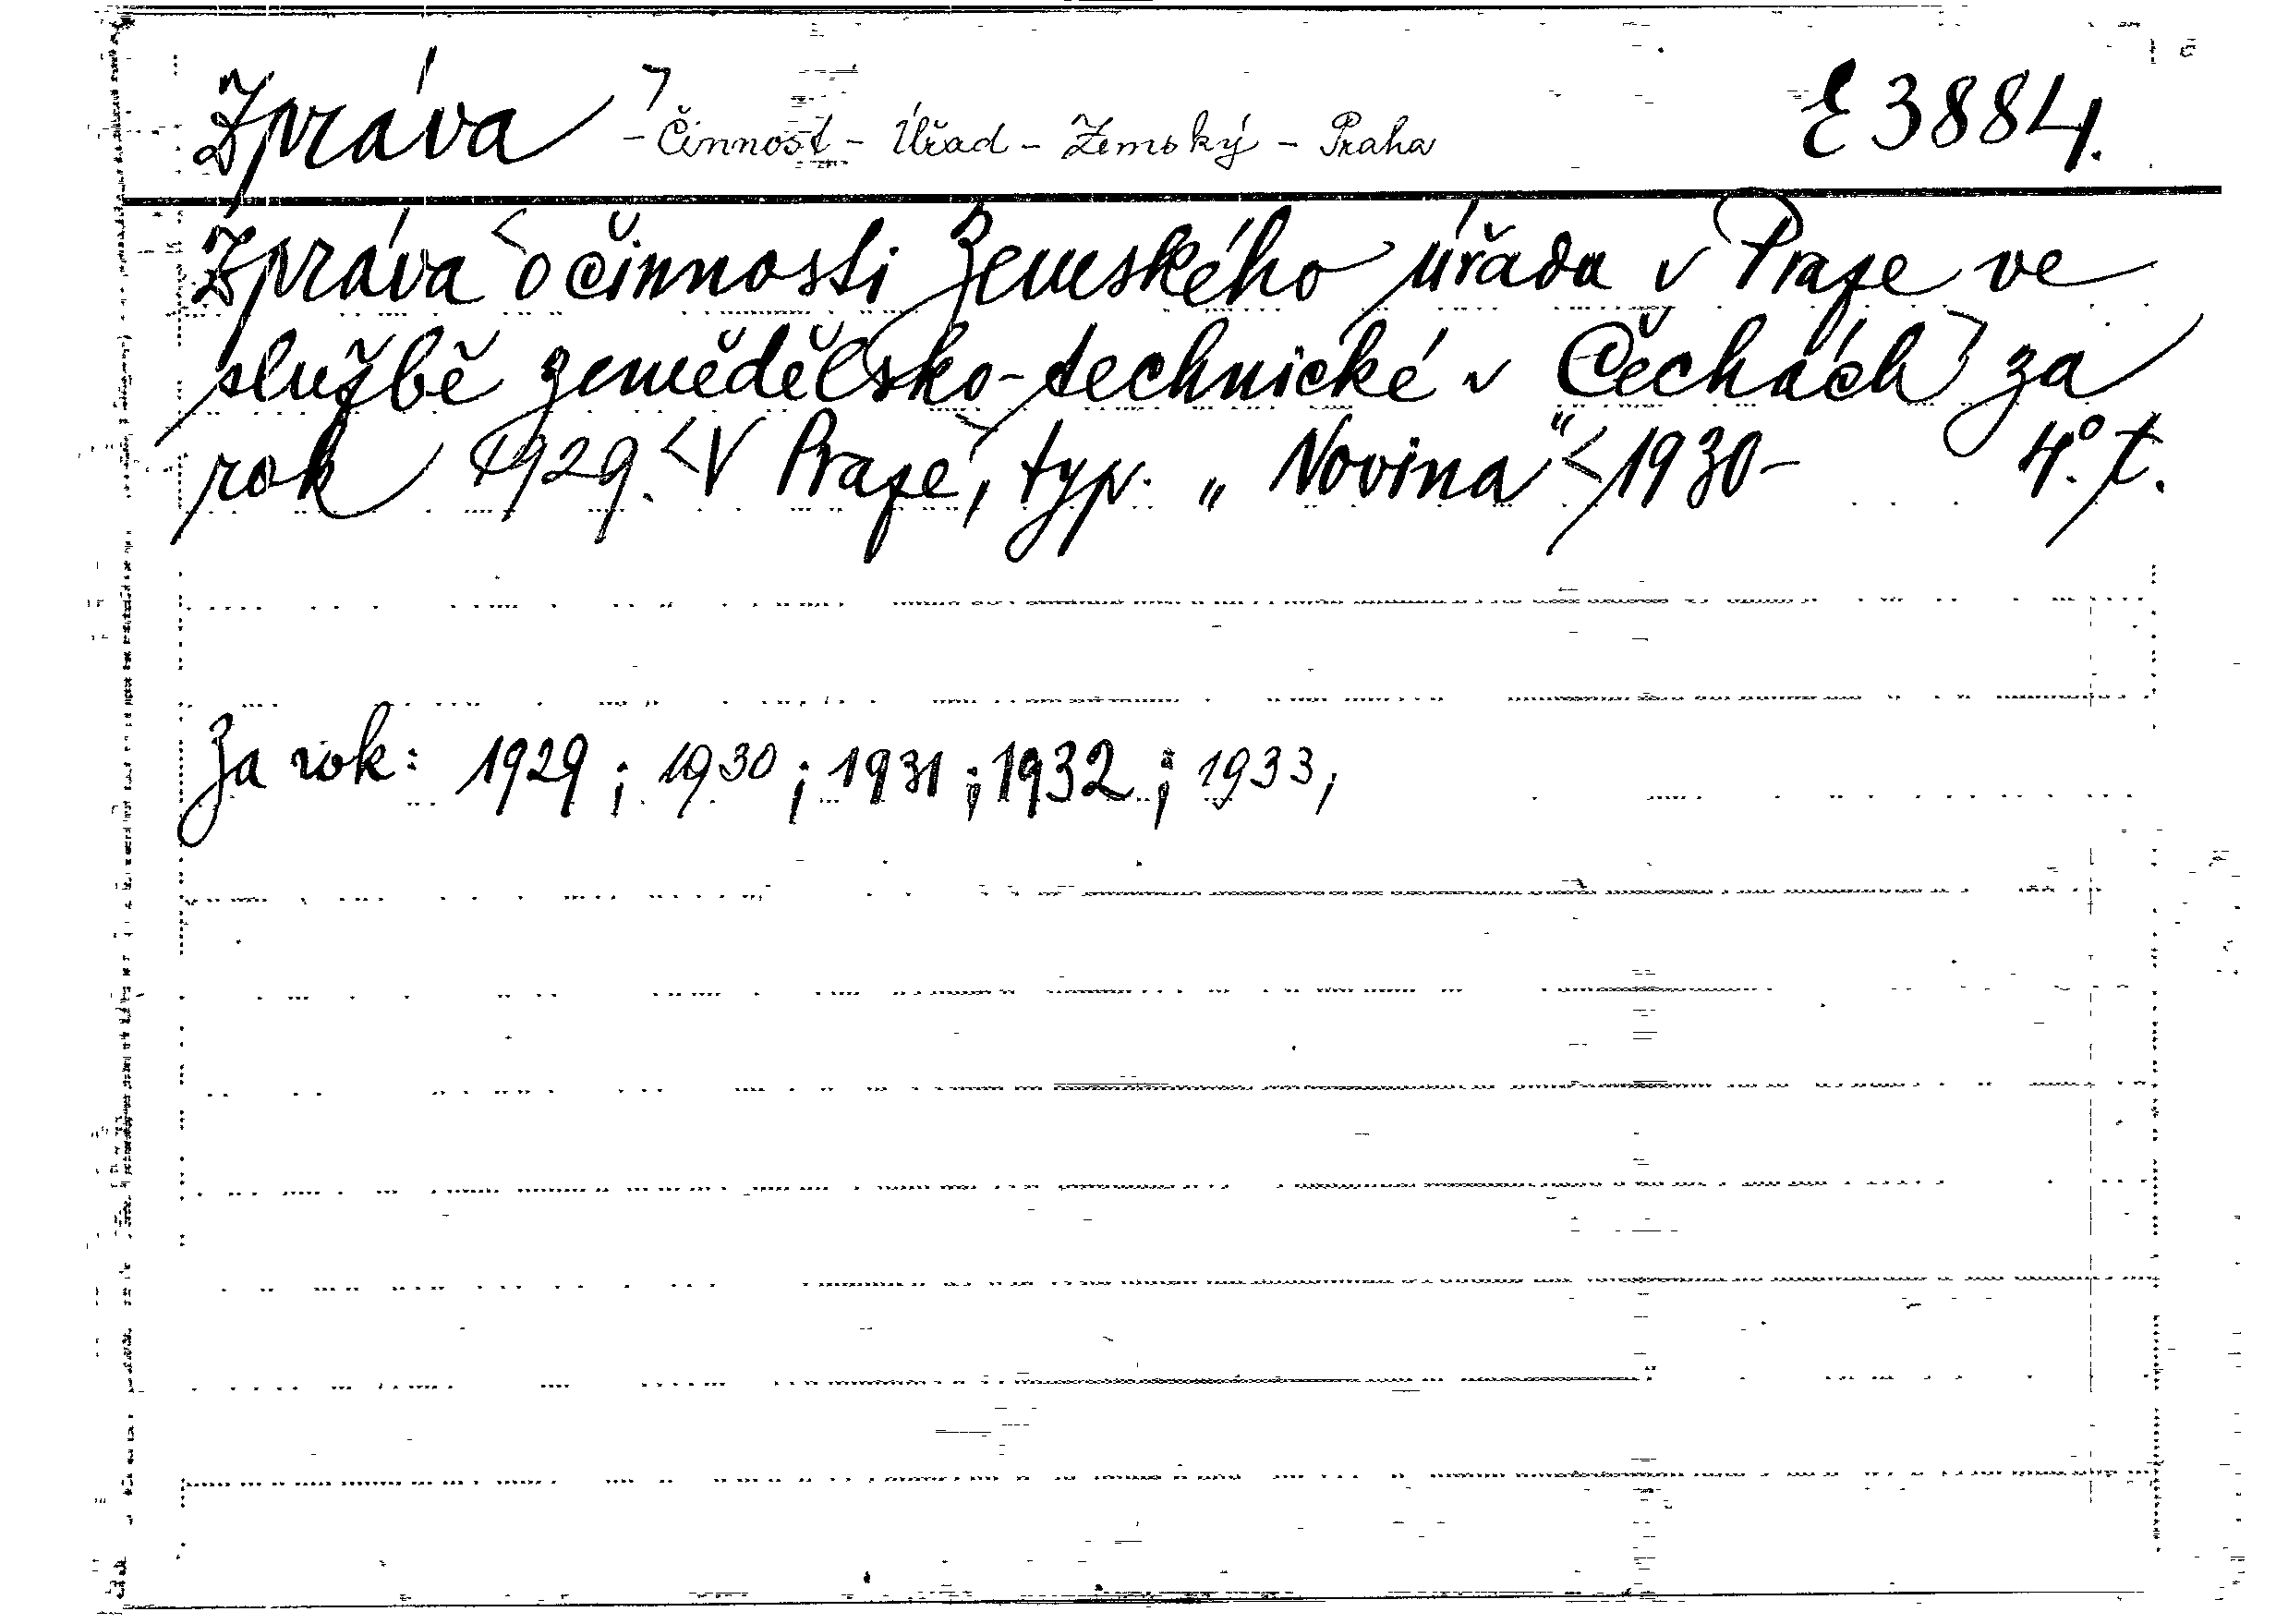 Zpráva - Činnost - Úřad - Zemský - Praha E 3884.
Zpráva o činnosti Zemského úřadu v Praze ve
službě zemědělsko-technické v Čechách za
rok 1929. V Praze, typ. „Novina" 1930- 4°. t.
Za rok: 1929 ; 1930 ; 1931 ; 1932 ; 1933,